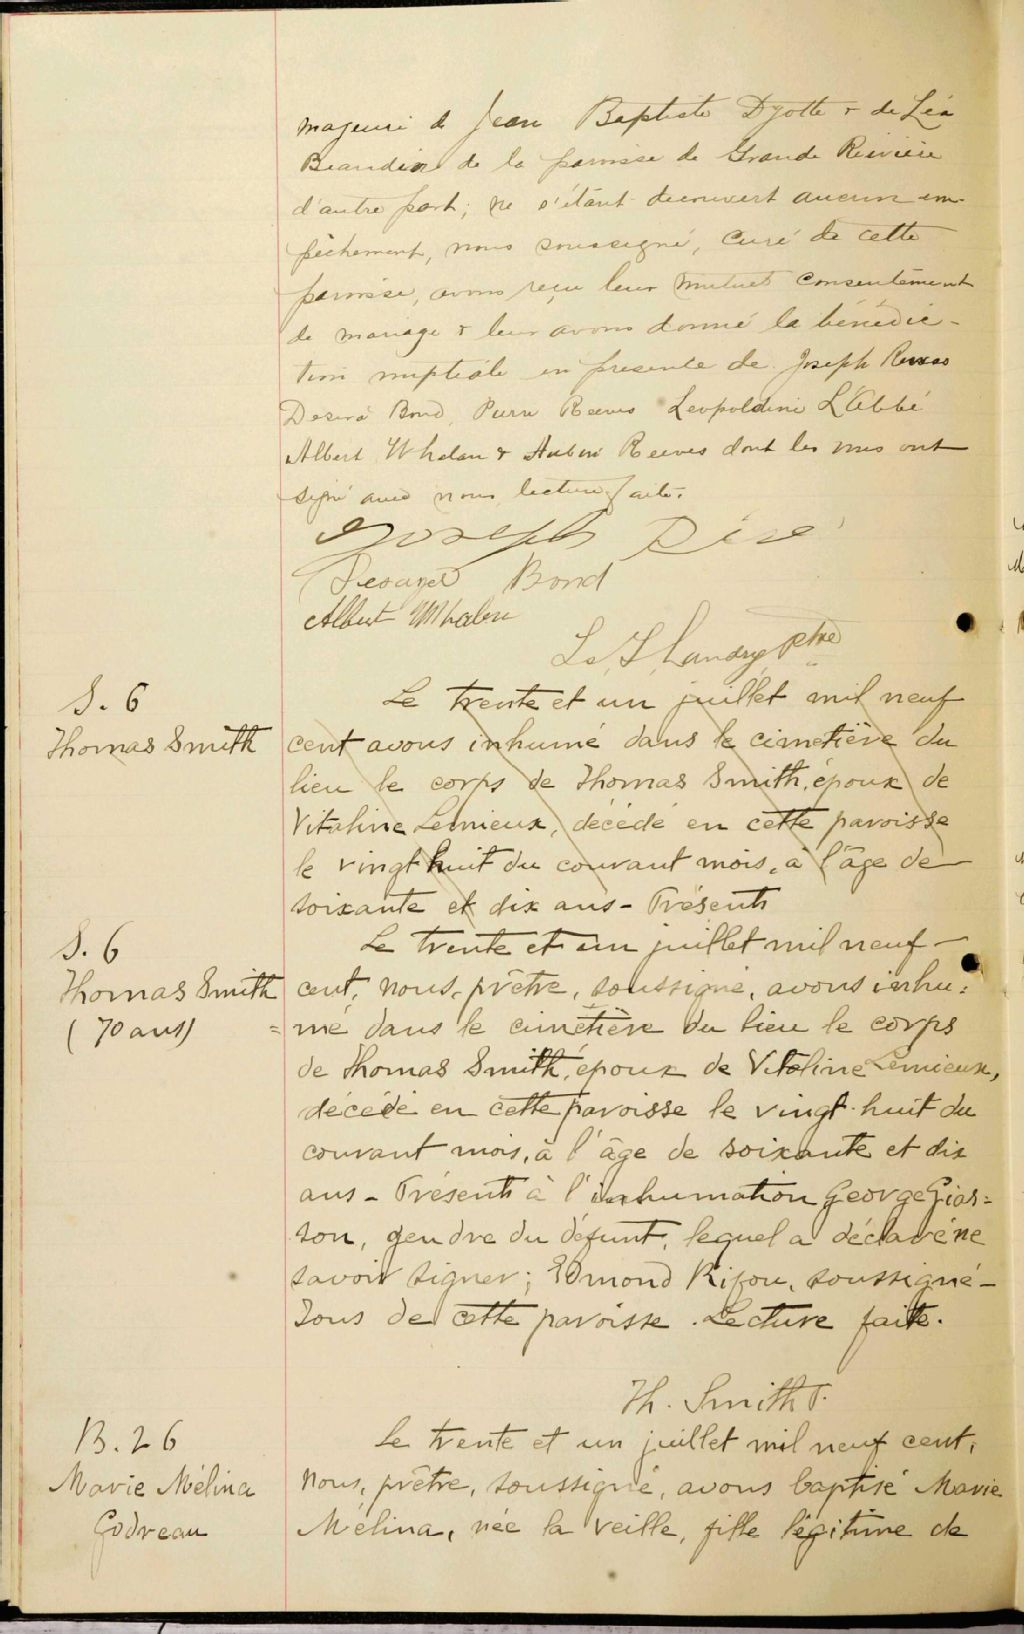 majeure de Jean Baptiste Dyotte & de Léa
Beaudin de la paroisse de Grande Rivière
d'autre part; ne s'étant decouvert aucun em-
pêchement, nous soussigné, curé de cette
paroisse, avons reçu leur mutuel consentement
de mariage & leur avons donné la bénédic-
tion nuptiale en presence de Joseph
Desiré Bond, Pierre Reeves Leopoldine L'Abbé
Albert Whelan & Reeves dont les uns ont
signé avec nous lecture faite.
Joseph
Bond
Albert Whalen
Landry ptre
S. 6
Thomas Smith
Le trente et un juillet mil neuf
cent avons inhumé dans le cimetière du
lieu le corps de Thomas Smith, époux de
Vitaline Lemieux, décédé en cette paroisse
le vingt huit du courant mois, à l'âge de
soixante et dix ans - Présents
S. 6
Thomas Smith
(70 ans)
Le trente et un juillet mil neuf -
cent, nous, prêtre, soussigné, avons inhu=
=mé dans le cimetière du lieu le corps
de Thomas Smith, époux de Vitaline Lemieux,
décédé en cette paroisse le vingt-huit du
courant mois, à l'âge de soixante et dix
ans - Présents à l'inhumation George Gias=
son, gendre du défunt, lequel a déclaré ne
savoir signer; Edmond Rifou, soussigné -
Tous de cette paroisse. Lecture faite.
Th. Smith P.
B. 26
Marie Mélina
Godreau
Le trente et un juillet mil neuf cent,
nous, prêtre, soussigné, avons baptisé Marie
Mélina, née la veille, fille légitime de